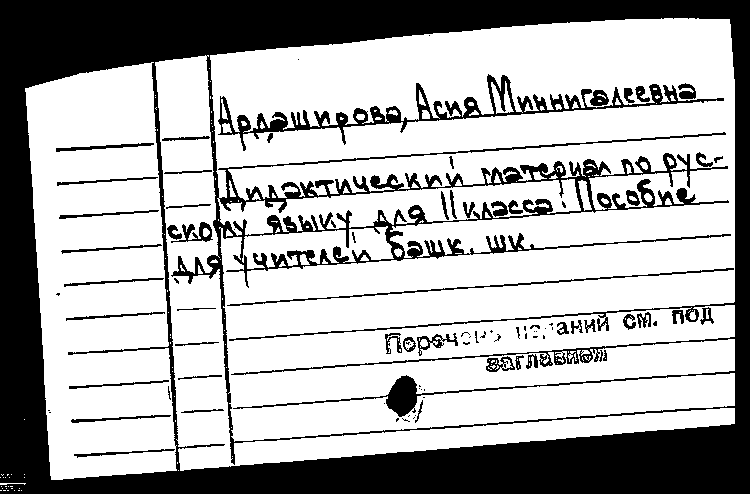 Ардаширова, Асия Миннигалеевна.
Дидактический материал по рус-
скому языку для II класса: Пособие
для учителей башк. шк.
Перечень изданий см. под
заглавием